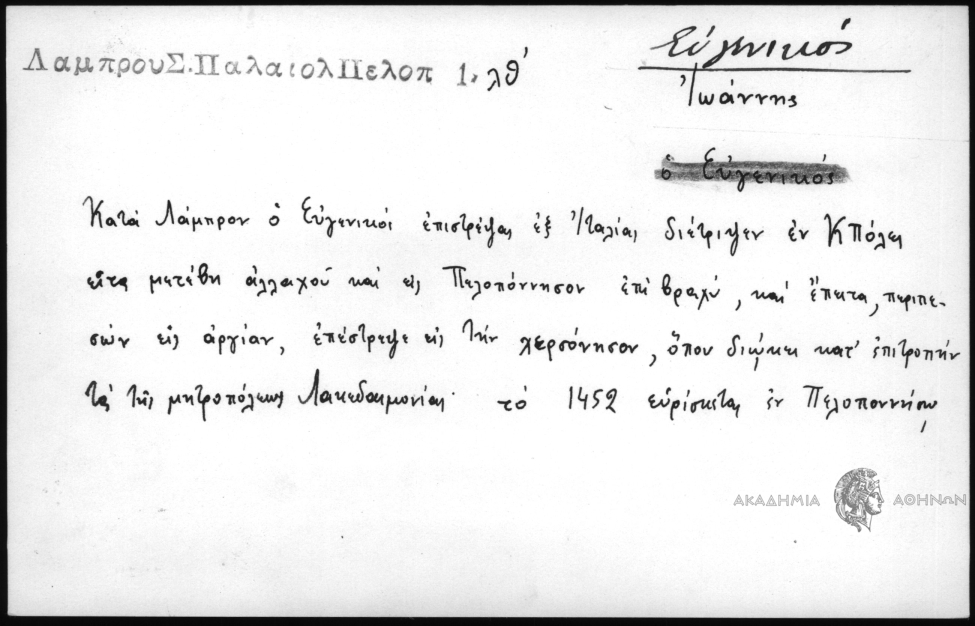 Λαμπρου Σ. Παλαιολ Πελοπ 1, λθ'
Εὐγενικός
Ἰωάννης
ὁ Εὐγενικός
Κατὰ Λάμπρον ὁ Εὐγενικὸς ἐπιστρέψας ἐξ Ἰταλίας διέτριψεν ἐν ΚΠόλει
εἶτα μετέβη ἀλλαχοῦ καὶ εἰς Πελοπόννησον ἐπὶ βραχύ, καὶ ἔπειτα, περιπε-
σὼν εἰς ἀργίαν, ἐπέστρεψε εἰς τὴν χερσόνησον, ὅπου διῴκει κατ' ἐπιτροπὴν
τὰ τῆς μητροπόλεως Λακεδαιμονίας. τὸ 1452 εὑρίσκεται ἐν Πελοποννήσῳ
ΑΚΑΔΗΜΙΑ ΑΘΗΝΩΝ